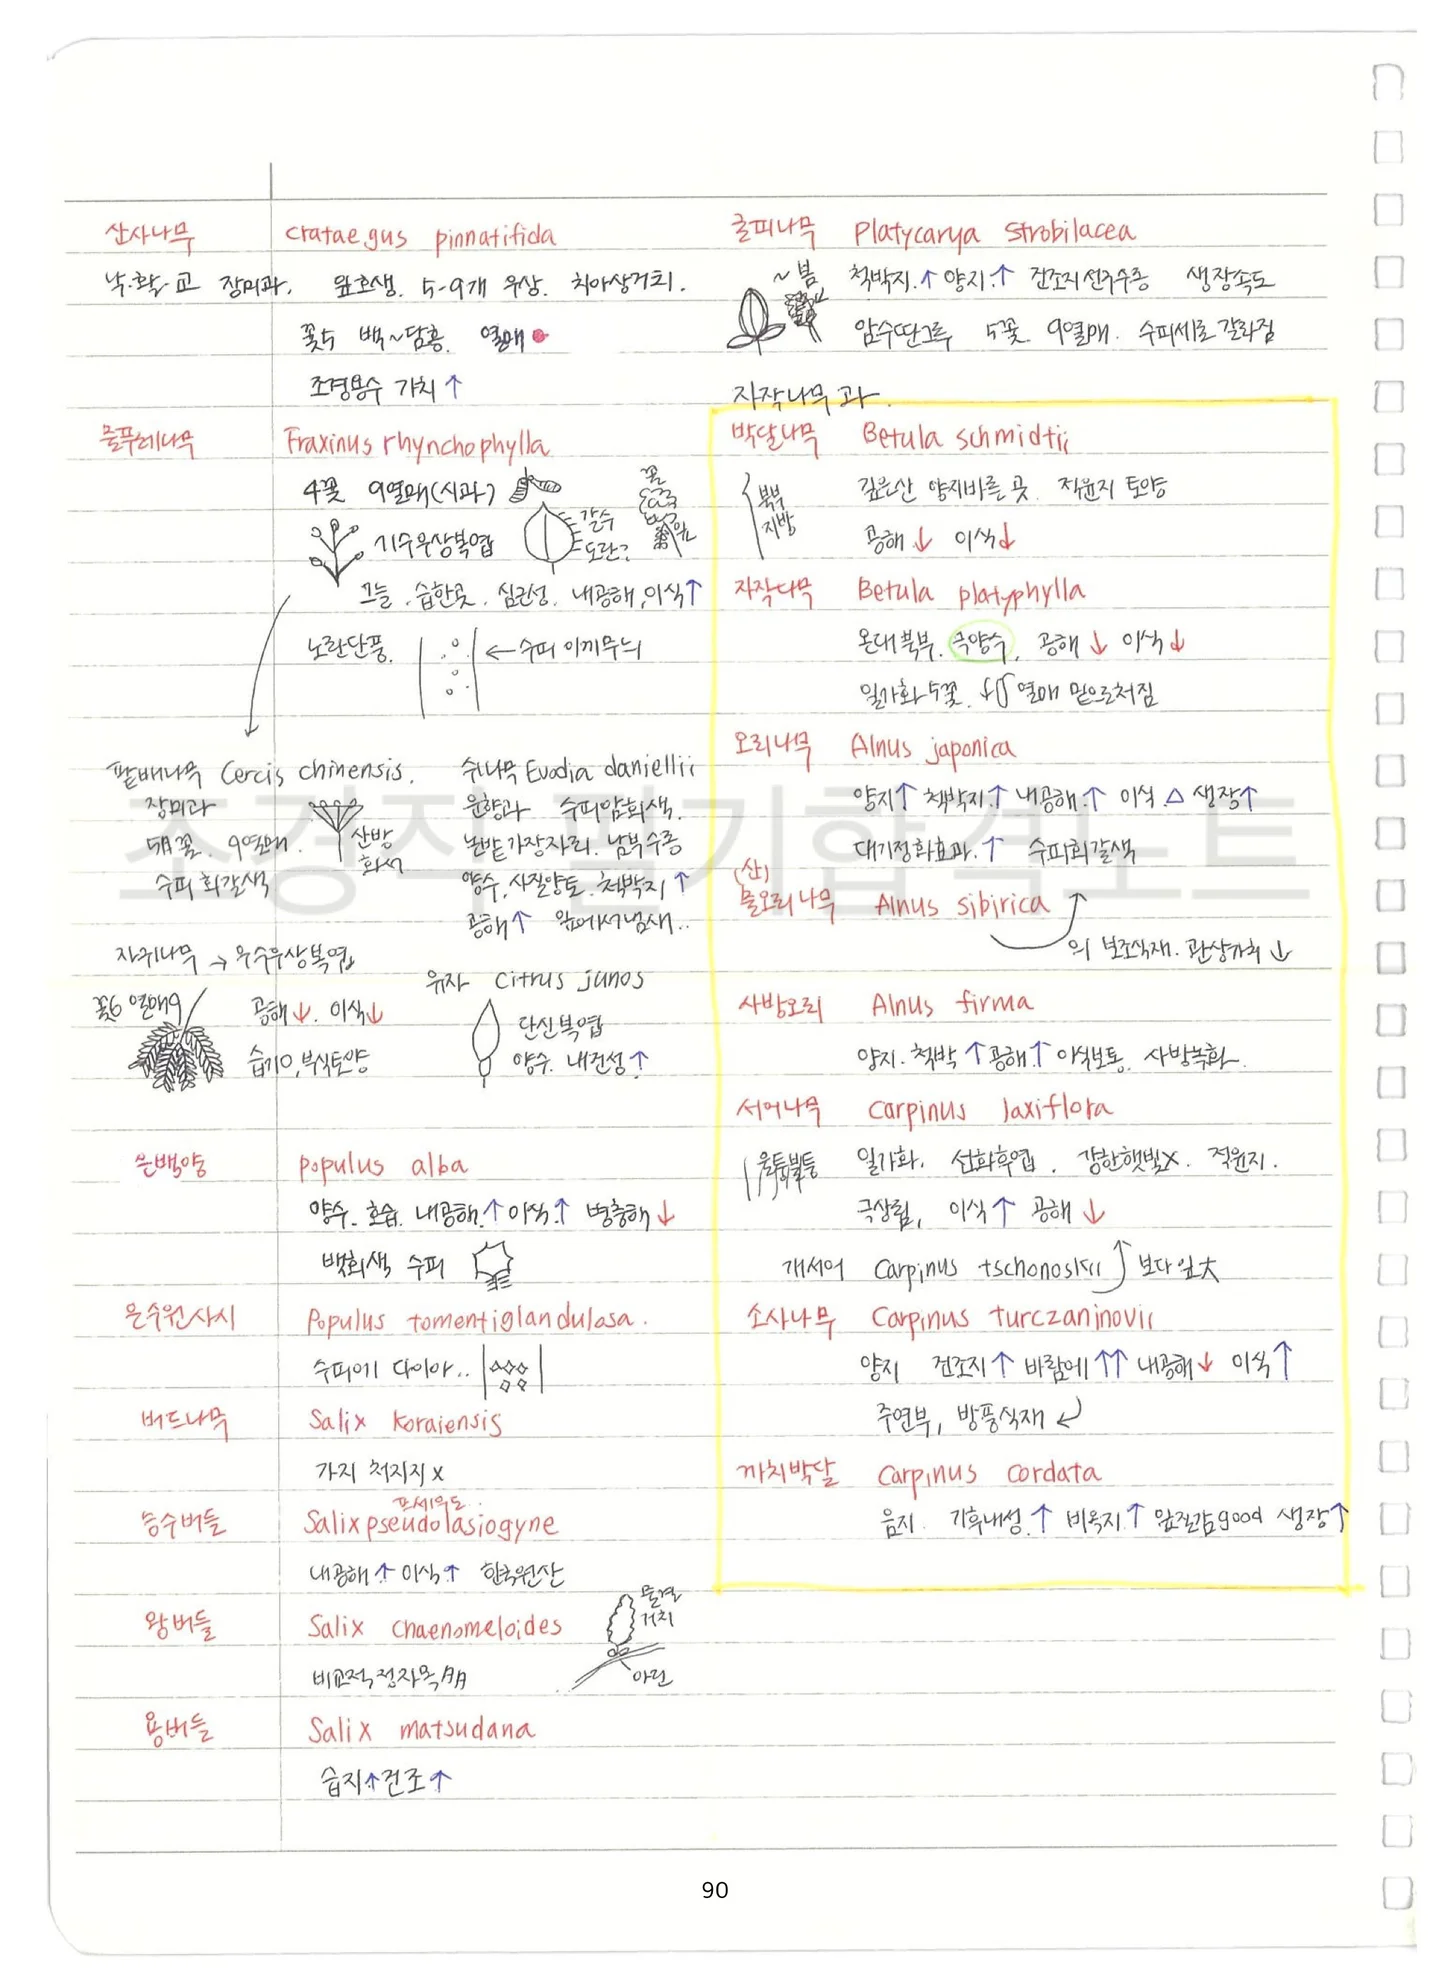 산사나무 Crataegus pinnatifida
낙.활.교 장미과. 잎호생. 5-9개 우상. 치아상거치.
꽃5 백~담홍. 열매
조경용수 가치 ↑
물푸레나무 Fraxinus rhynchophylla
4꽃 9열매(시과)
꽃
잎
기수우상복엽
갈수
도란?
그늘. 습한곳. 심근성. 내공해, 이식↑
노란단풍. ← 수피 이끼무늬
팥배나무 Cercis chinensis.
장미과
5月꽃. 9열매.
산방
화서
수피 회갈색
쉬나무 Evodia daniellii
운향과 수피암회색.
논밭 가장자리. 남부수종
양수, 사질양토. 척박지 ↑
공해↑ 잎에서 냄새..
자귀나무 → 우수우상복엽
꽃6 열매9 공해↓. 이식↓
습기O, 부식토양
유자 Citrus junos
단신복엽
양수. 내건성↑
은백양 Populus alba
양수. 호습. 내공해.↑ 이식.↑ 병충해↓
백회색 수피
은수원사시 Populus tomentiglandulosa.
수피에 다이아..
버드나무 Salix koraiensis
가지 쳐지지 x
프세우도.
능수버들 Salix pseudolasiogyne
내공해↑ 이식↑ 한국원산
왕버들 Salix chaenomeloides
물결
거치
아린
비교적 정자목多
용버들 Salix matsudana
습지↑ 건조↑
굴피나무 Platycarya strobilacea
~봄 척박지.↑ 양지.↑ 건조지선구수종 생장속도
암수딴그루 5꽃. 9열매. 수피세로갈라짐
자작나무과.
박달나무 Betula schmidtii
북부
지방
깊은산 양지바른 곳. 적윤지 토양
공해↓ 이식↓
자작나무 Betula platyphylla
온대북부. 극양수. 공해↓ 이식↓
일가화 5꽃. 열매 밑으로처짐
오리나무 Alnus japonica
양지↑ 척박지.↑ 내공해.↑ 이식.△ 생장↑
대기정화효과.↑ 수피회갈색
(산)
물오리나무 Alnus sibirica
의 보조식재. 관상가치↓
사방오리 Alnus firma
양지. 척박↑ 공해↑ 이식보통. 사방녹화.
서어나무 Carpinus laxiflora
울퉁불퉁 일가화. 선화후엽. 강한햇빛x. 적윤지.
극상림, 이식↑ 공해↓
개서어 Carpinus tschonoskii 보다 잎大
소사나무 Carpinus turczaninovii
양지 건조지↑ 바람에↑↑ 내공해↓ 이식↑
주연부, 방풍식재
까치박달 Carpinus cordata
음지. 기후내성.↑ 비옥지.↑ 잎질감good 생장↑
조경직 필기합격노트
90